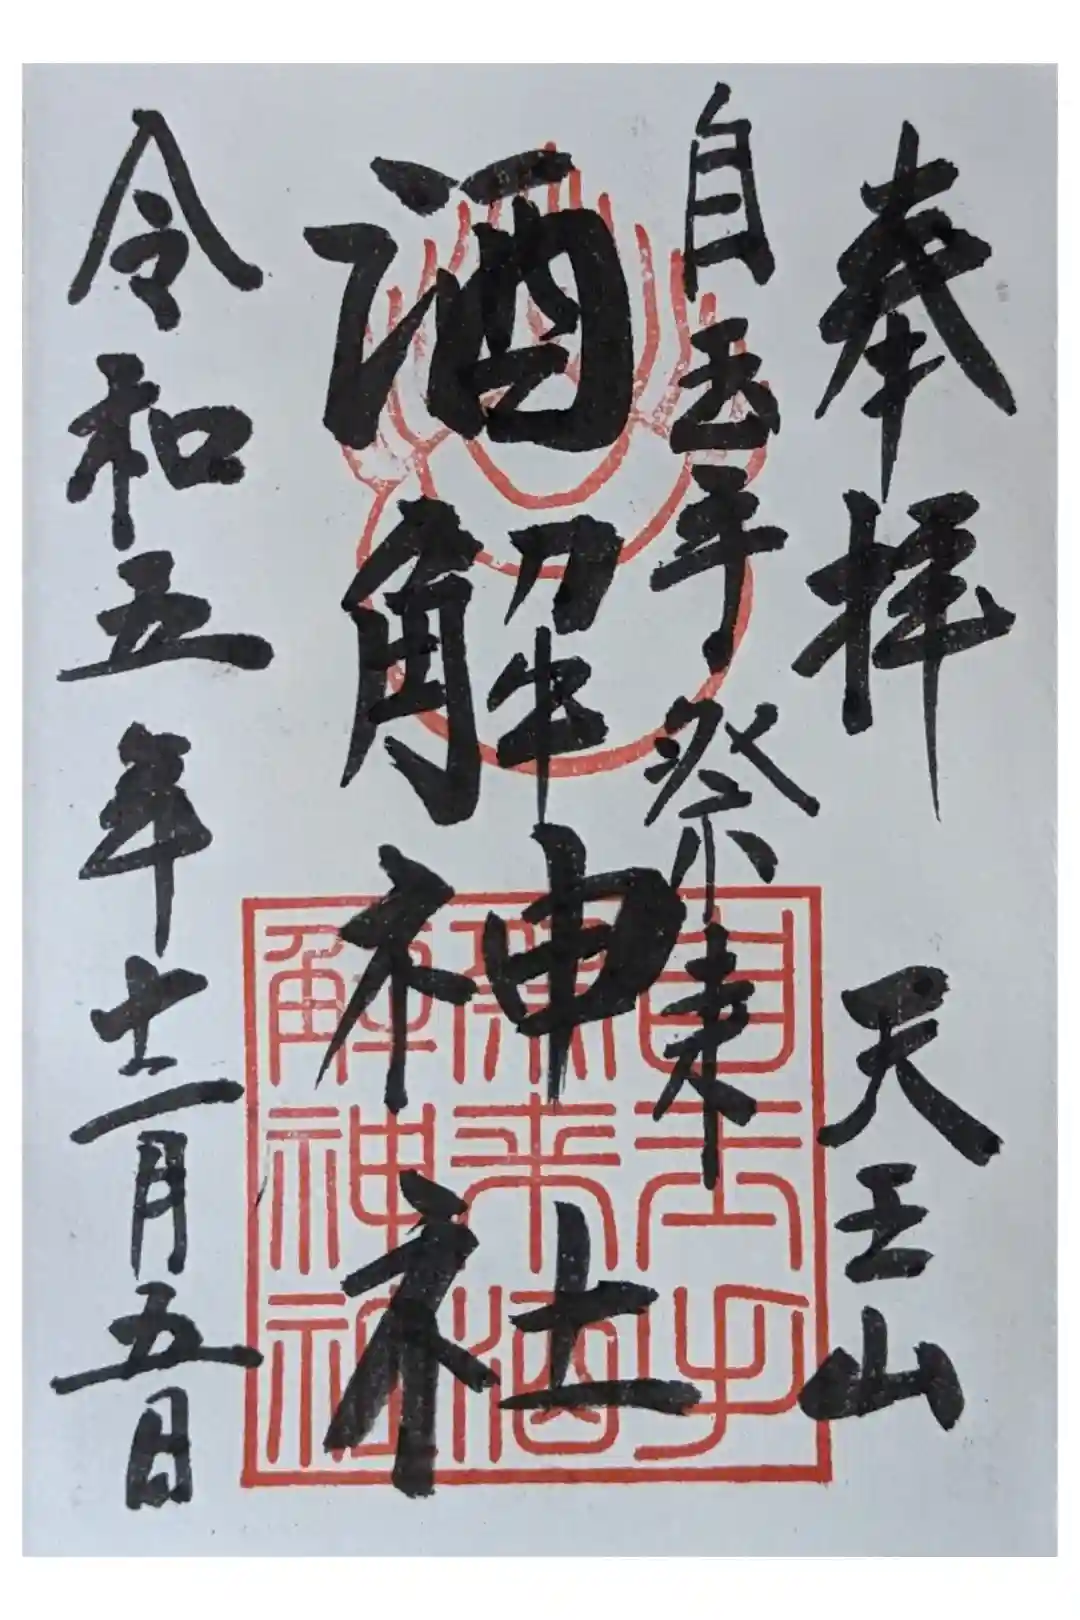 奉拝 天王山
自玉手祭来
酒解神社
令和五年十二月五日
自玉手
祭来酒
解神社